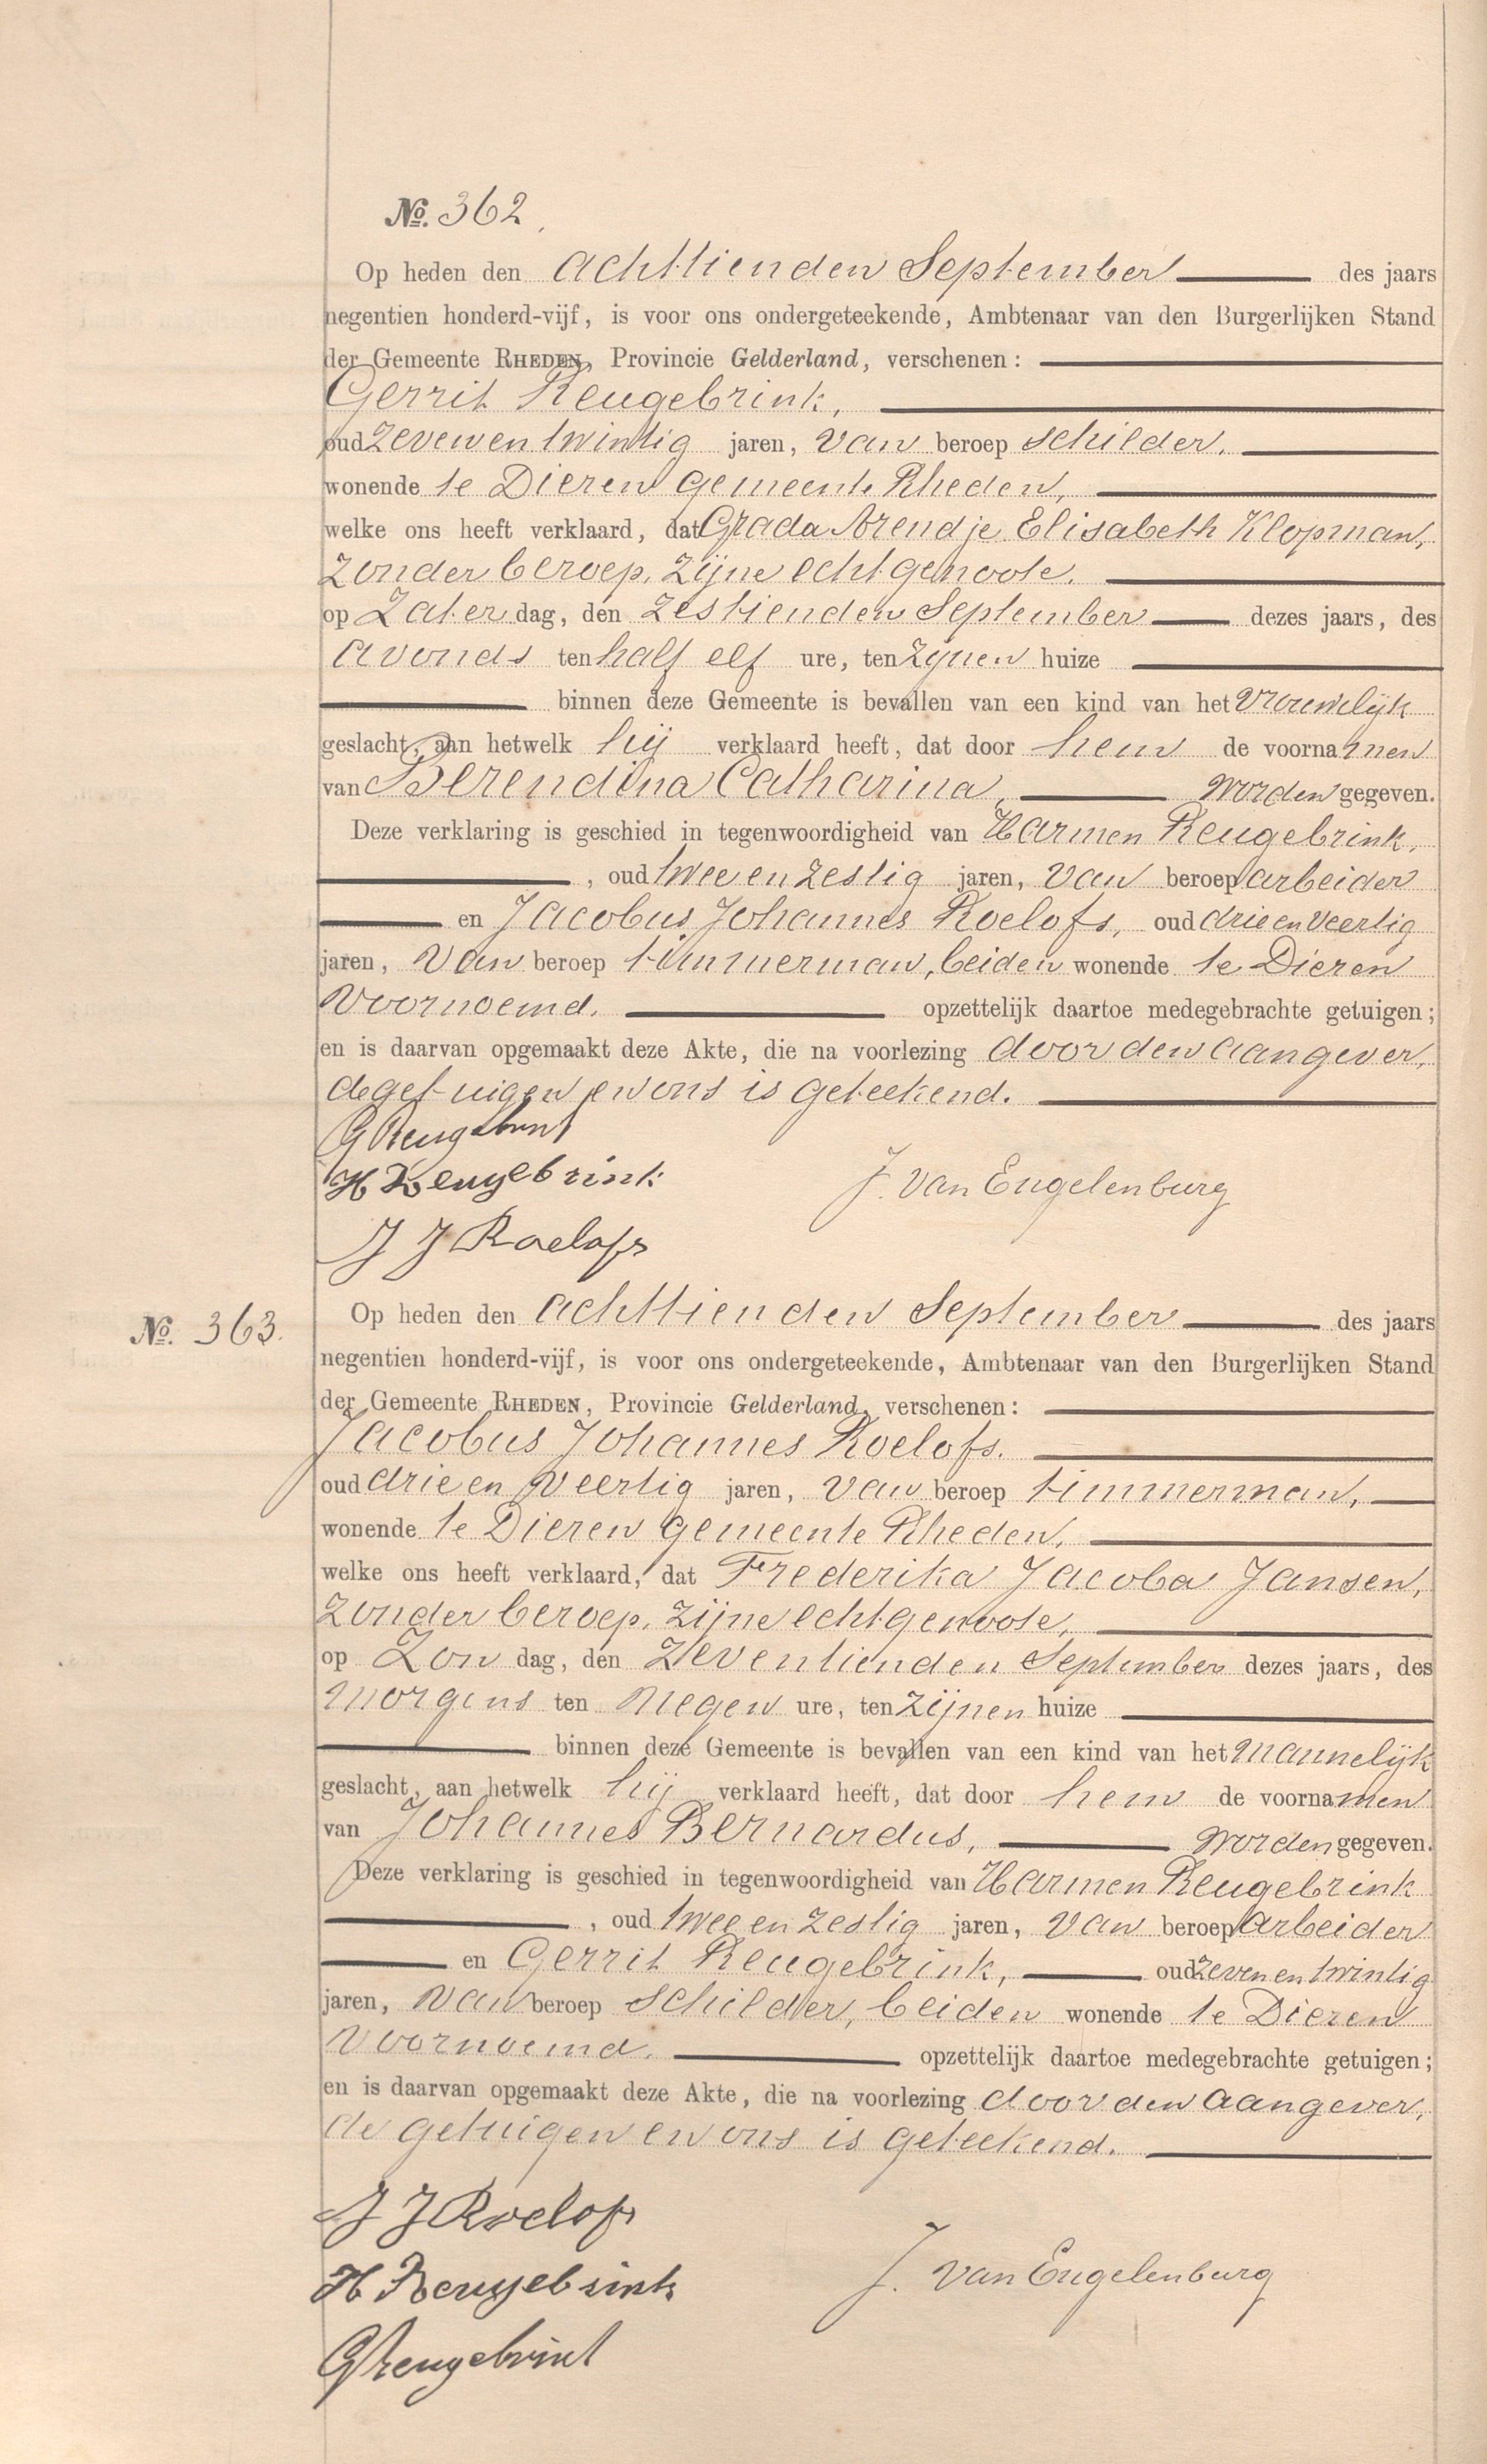 No. 362.
Op heden den achttienden September des jaars
negentien honderd-vijf, is voor ons ondergeteekende, Ambtenaar van den Burgerlijken Stand
der Gemeente RHEDEN, Provincie Gelderland, verschenen:
Gerrit Reugebrink,
oud zevenentwintig jaren, van beroep schilder,
wonende te Dieren gemeente Rheden,
welke ons heeft verklaard, dat Grada Arendje Elisabeth Klopman,
zonder beroep, zijne echtgenoote,
op Zaterdag, den zestienden September dezes jaars, des
avonds ten half elf ure, ten zijnen huize
binnen deze Gemeente is bevallen van een kind van het vrouwelijk
geslacht, aan hetwelk hij verklaard heeft, dat door hem de voornamen
van Berendina Catharina, worden gegeven.
Deze verklaring is geschied in tegenwoordigheid van Harmen Reugebrink,
, oud tweeenzestig jaren, van beroep arbeider
en Jacobus Johannes Roelofs, oud drieenveertig
jaren, van beroep timmerman, beiden wonende te Dieren
voornoemd. opzettelijk daartoe medegebrachte getuigen;
en is daarvan opgemaakt deze Akte, die na voorlezing door den aangever,
de getuigen en ons is geteekend.
G Reugebrink
H Reugebrink J. van Engelenburg
J J Roelofs
No. 363.
Op heden den achttienden September des jaars
negentien honderd-vijf, is voor ons ondergeteekende, Ambtenaar van den Burgerlijken Stand
der Gemeente RHEDEN, Provincie Gelderland, verschenen:
Jacobus Johannes Roelofs.
oud drieenveertig jaren, van beroep timmerman,
wonende te Dieren gemeente Rheden,
welke ons heeft verklaard, dat Frederika Jacoba Jansen,
zonder beroep, zijne echtgenoote,
op Zondag, den zeventienden September dezes jaars, des
morgens ten negen ure, ten zijnen huize
binnen deze Gemeente is bevallen van een kind van het mannelijk
geslacht, aan hetwelk hij verklaard heeft, dat door hem de voornamen
van Johannes Bernardus, worden gegeven.
Deze verklaring is geschied in tegenwoordigheid van Harmen Reugebrink
, oud tweeenzestig jaren, van beroep arbeider
en Gerrit Reugebrink, oud zevenentwintig
jaren, van beroep schilder, beiden wonende te Dieren
voornoemd. opzettelijk daartoe medegebrachte getuigen;
en is daarvan opgemaakt deze Akte, die na voorlezing door den aangever,
de getuigen en ons is geteekend.
J J Roelofs
H Reugebrink J. van Engelenburg
G Reugebrink